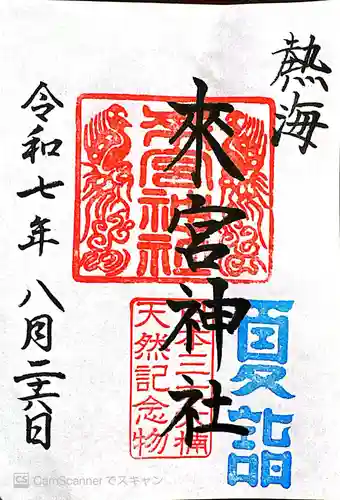 熱海
來宮神社
夏詣
天然記念物
令和七年 八月二十六日
CS CamScanner でスキャン